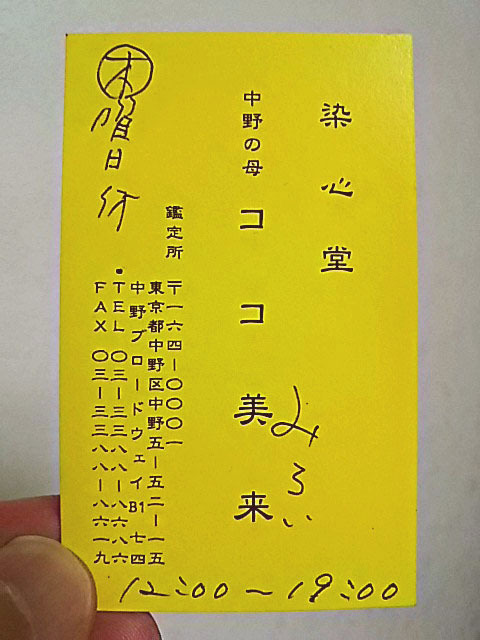 染心堂
中野の母 ココ美来
みらい
鑑定所
〒一六四-〇〇〇一
東京都中野区中野五-五二-一五
中野ブロードウェイB1 七四
・TEL 〇三-三三八八-八六八六
FAX 〇三-三三八八-八六一九
木曜日休
12:00〜19:00